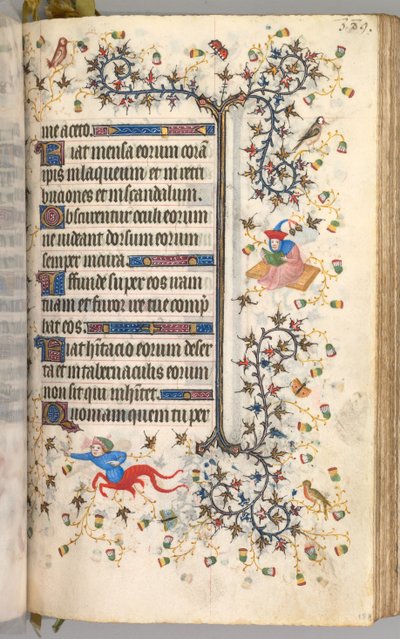 me aceto.
Fiat mensa eorum corā
ipis in laqueum et in retri
butiones et in scandalum.
Obscurentur oculi eorum
ne videant dorsum eorum
semper incurva.
Effunde super eos iram
tuam et furor ire tue comp̄
hat eos.
Fiat hitacio eorum deser
ta et in tabernaculis eorum
non sit qui inhitet.
Quoniam quem tu per